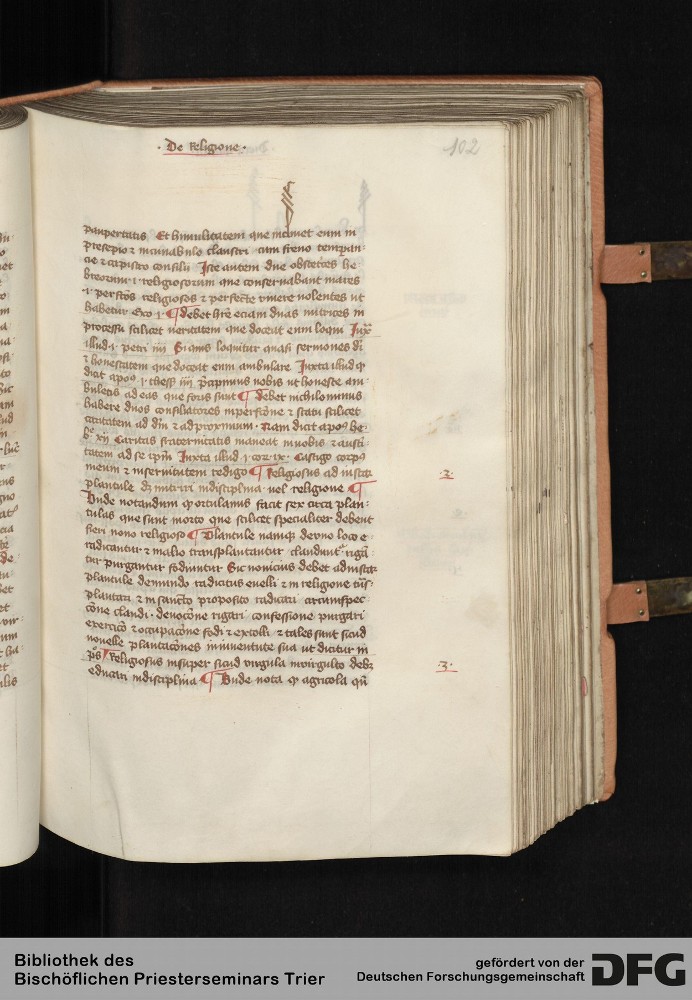 · De Religione ·
102
paupertatis Et humilitatem que incuuet eum in
presepio ⁊ incunabulo claustri cum freno temperan-
cie ⁊ capistro consilii Iste autem due obstetrices he-
breorum ⁊ religiosorum que conseruabant mares
·i· perfectos religiosos ⁊ perfecte viuere volentes ut
habetur Exo ·i· ¶ debet hr̄e eciam duas nutrices in
processu scilicet veritatem que doceat eum loqui Iux̄
illud ·i· petri iiij Si quis loquitur quasi sermones di
⁊ honestatem que doceat eum ambulare Iuxta illud qͥ
dicit apoꝰ ·i· thess iiij p̄cipimus vobis ut honeste am-
buletis ad eas que foris sunt ¶ debet nichilominus
habere duos consiliatores in perfectione ⁊ statu scilicet
caritatem ad dm̄ ⁊ ad proximum · Nam dicit apoꝰ he-
bͬ xiij Caritas fraternitatis maneat in uobis ⁊ austi
tatem ad se ip̄m Iuxta illud ·i· cor ·ix· Castigo corpꝰ
meum ⁊ in seruitutem redigo ¶ Religiosus ad instar
plantule dꝫ nutriri in disciplina vel religione ¶
Unde notandum ꝙ ortulanus facit sex circa plan-
tulas que sunt in orto que scilicet specialiter debent
fieri nouo religioso ¶ Plantule namqꝫ de uno loco e-
radicantur ⁊ in alio transplantantur clauduntͬ riga-
tur purgantur fodiuntur Sic nouicius debet ad instar
plantule de mundo radicitus euelli ⁊ in religione tn̄s-
plantari ⁊ in sancto proposito radicari circumspec-
cōne claudi · deuocōne rigari confessione purgari
exercicō ⁊ occupacōne fodi ⁊ extolli ⁊ tales sunt sicud
nouelle plantacōnes in iuuentute sua ut dicitur in
pͦs ¶ Religiosus insuper sicud virgula in virgulto debꝫ
educari in disciplina ¶ Unde nota ꝙ agricola qn̄
·2·
·3·
Bibliothek des
Bischöflichen Priesterseminars Trier
gefördert von der
Deutschen Forschungsgemeinschaft
DFG